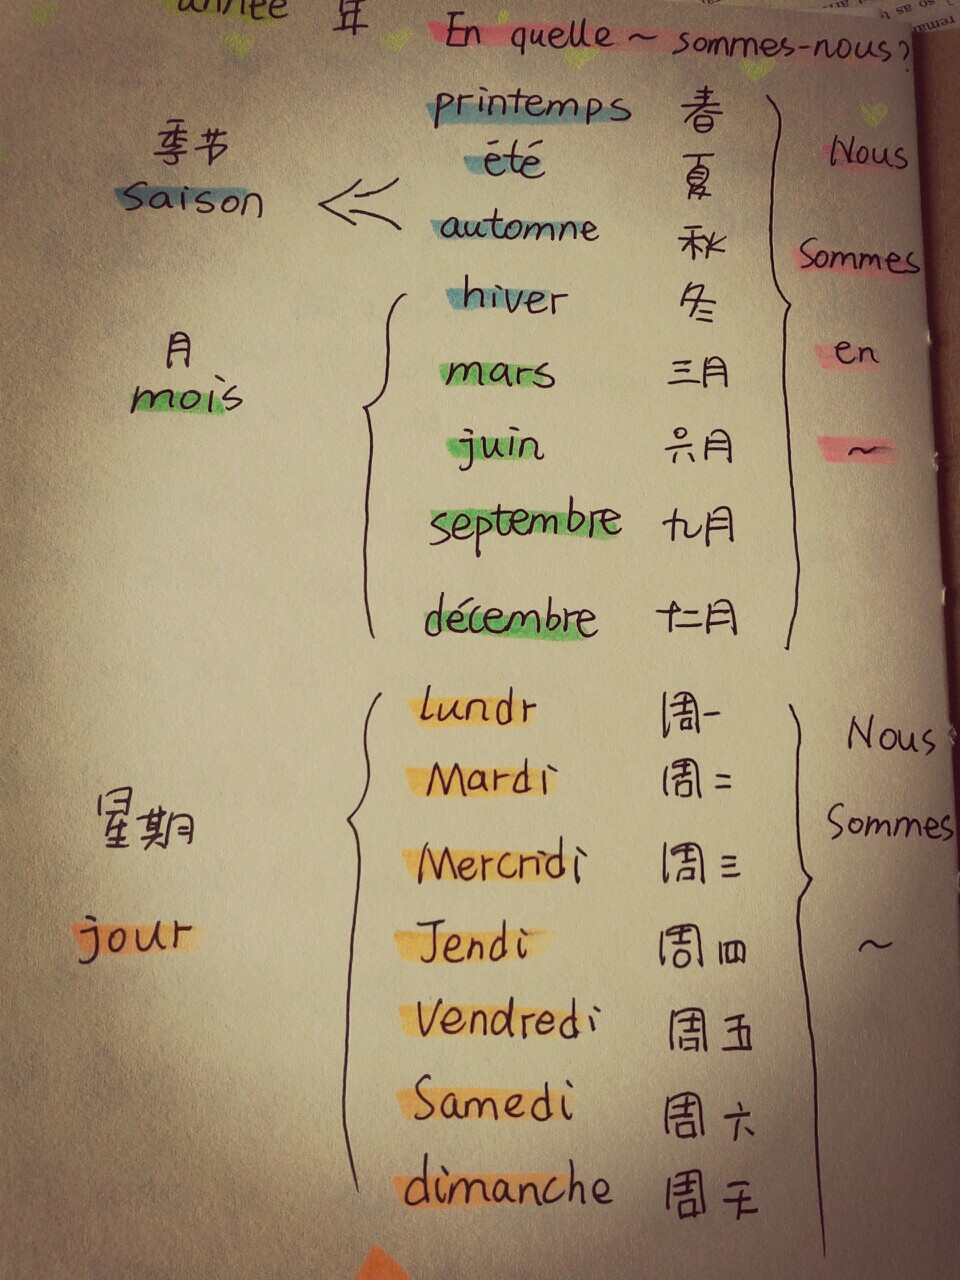 année 年 En quelle ~ sommes-nous?
printemps 春
季节 été 夏
saison automne 秋
hiver 冬
月 mars 三月
mois juin 六月
septembre 九月
décembre 十二月
Nous
Sommes
en
~
Lundr 周一
Mardi 周二
Mercridi 周三
星期 Jendi 周四
jour Vendredi 周五
Samedi 周六
dimanche 周天
Nous
Sommes
~